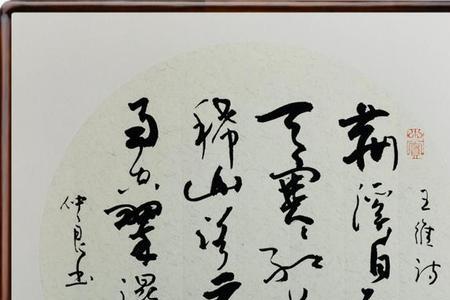 王维诗
荆溪白
天寒红
稀山路元
雨空翠湿
仲良书